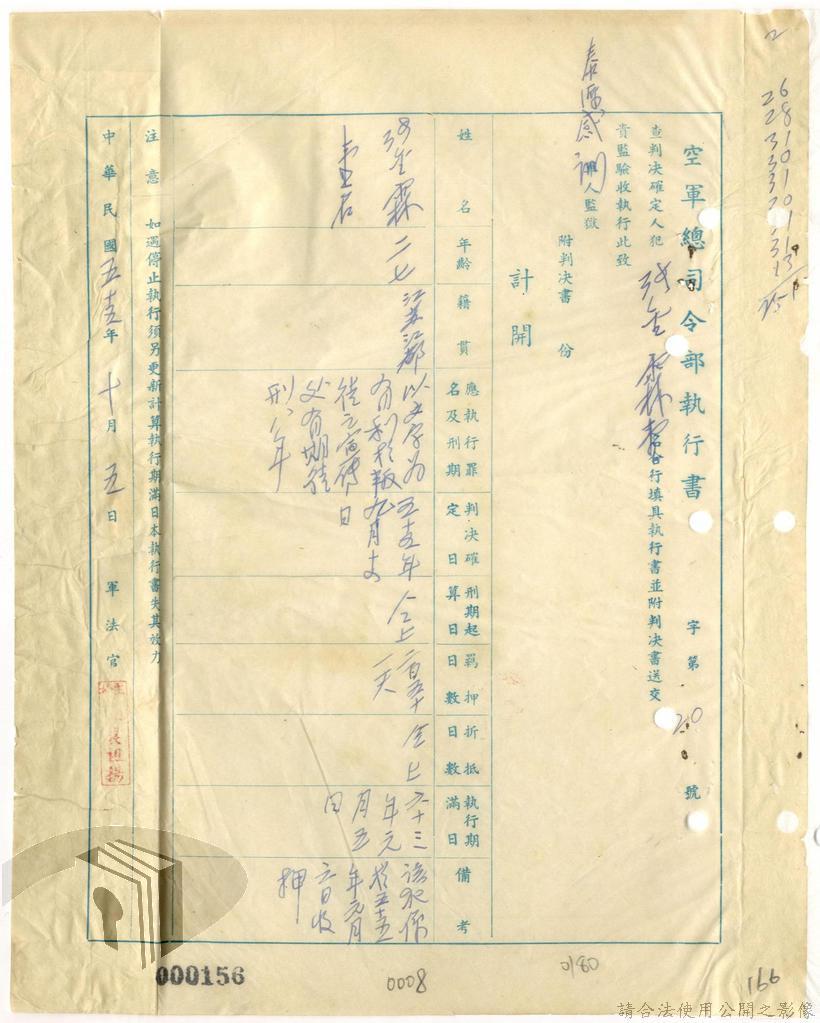 空軍總司令部執行書
字第20號
查判決確定人犯 張金霖 等合行填具執行書並附判決書送交
貴監驗收執行此致
泰源感訓
人監獄
附判決書 份
計開
姓名
年齡
籍貫
應執行罪名及刑期
判決確定日
刑期起算日
羈押日數
折抵日數
執行期滿日
備考
張金霖
二七
江蘇江都
以文字為
有利於叛
徒之宣傳
處有期徒
刑八年
五十五年
九月
日
仝上
二百五十
一天
仝上
六十三
年元
月五
日
該犯係
於五十五
年元月
六日收
押
注意 如遇停止執行須另更新計算執行期滿日本執行書失其效力
中華民國五十五年十月五日 軍法官
2
26
28
31
30
31
30
31
31
13
251
000156
0008
0180
166
請合法使用公開之影像